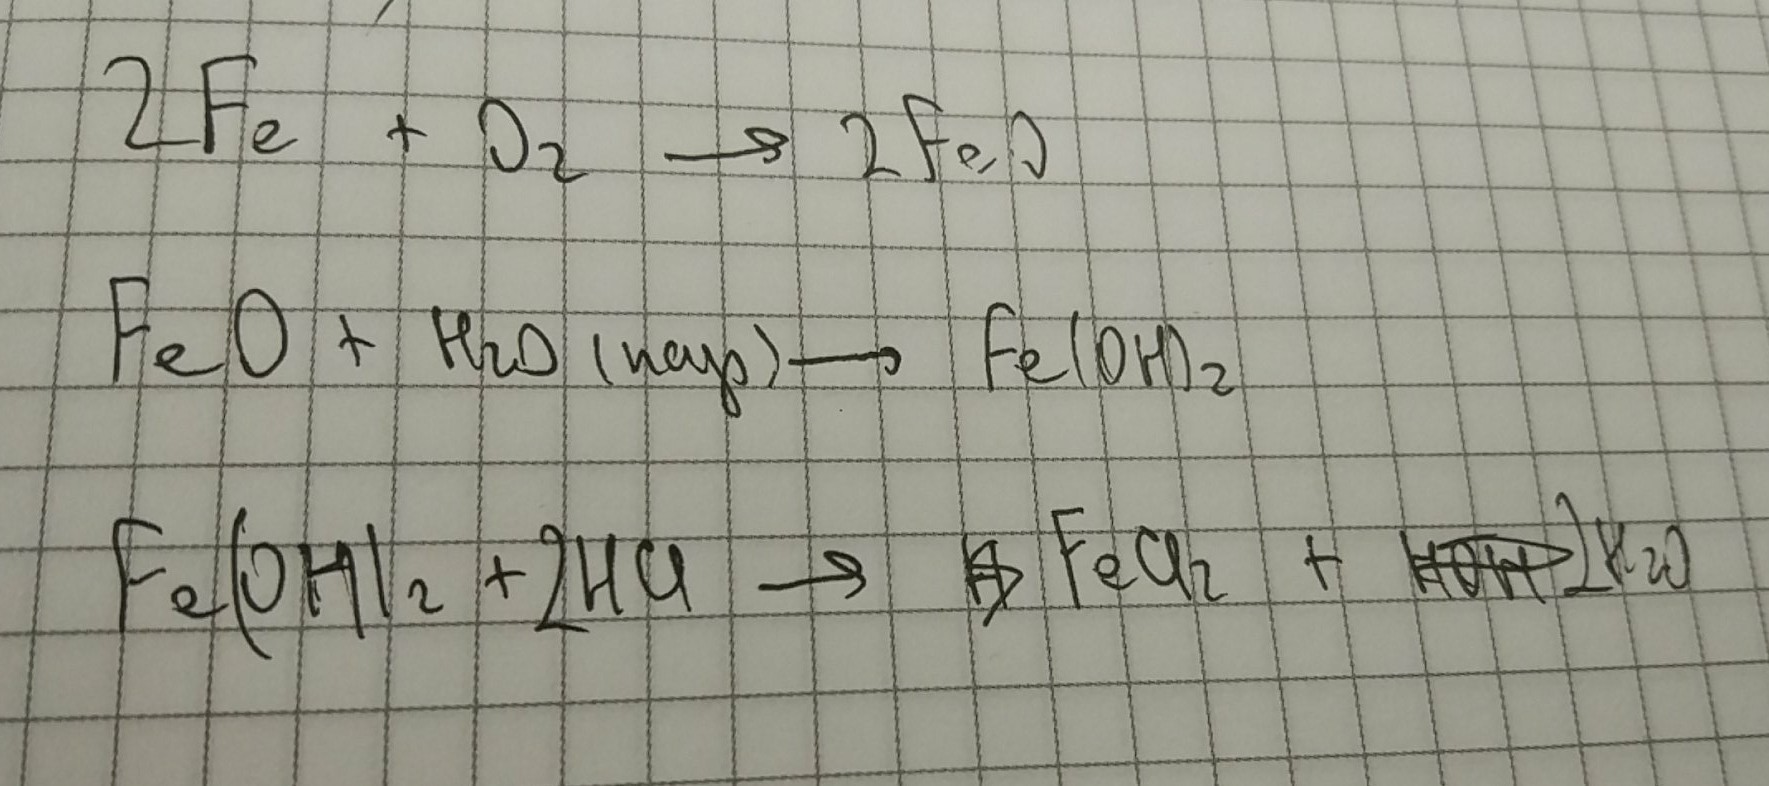 2Fe + O₂ → 2FeO
FeO + H₂O (пар) → Fe(OH)₂
Fe(OH)₂ + 2HCl → FeCl₂ + 2H₂O